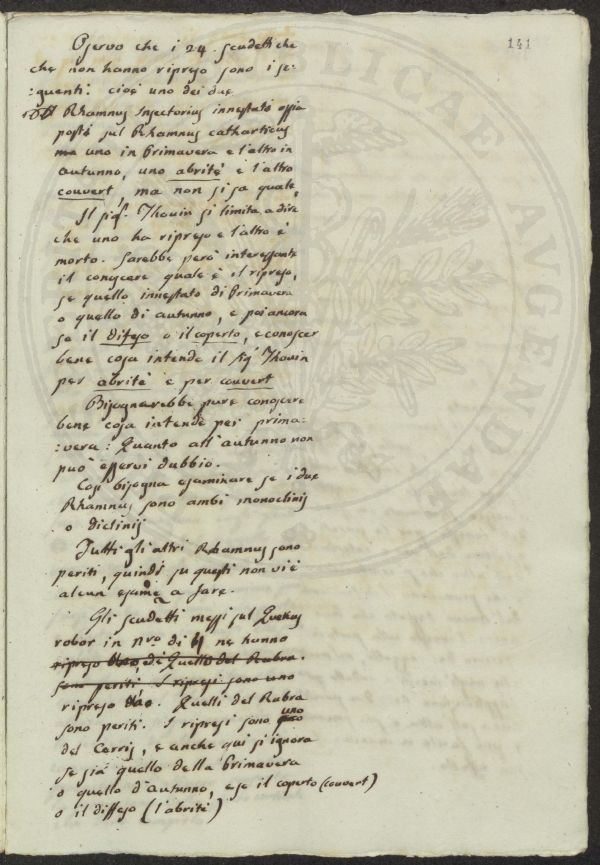 141
Osservo che i 24 scudetti che
che non hanno ripreso sono i se=
:guenti: cioè uno dei due
Rhamnus Infectorius innestati ossia
posti sul Rhamnus catharticus
ma uno in Primavera e l'altro in
autunno, uno abrité e l'altro
couvert, ma non si sa quale,
Il sigr. Thouin si limita a dire
che uno ha ripreso e l'altro è
morto. Sarebbe però interessante
il conoscere quale è il ripreso,
se quello innestato di Primavera
o quello di autunno, e poi ancora
se il difeso o il coperto, e conoscer
bene cosa intende il Sigr Thouin
per abrité e per couvert
Bisognerebbe pure conoscere
bene cosa intende per prima=
:vera: Quanto all'autunno non
può esservi dubbio.
Così bisogna esaminare se i due
Rhamnus sono ambi monoclinij
o diclinij
Tutti gli altri Rhamnus sono
periti, quindi su questi non vi è
alcun esame a fare.
Gli scudetti messi sul Quercus
robor in nro di 4 ne hanno
ripreso Quello del Rubra.
sono periti. I ripresi sono uno
ripreso Quelli del Rubra
sono periti. I ripresi sono uno
del Cerris, e anche qui si ignora
se sia quello della Primavera
o quello d'autunno, e se il coperto (couvert)
o il diffeso (l'abrité)
LICAE AVGENDAE